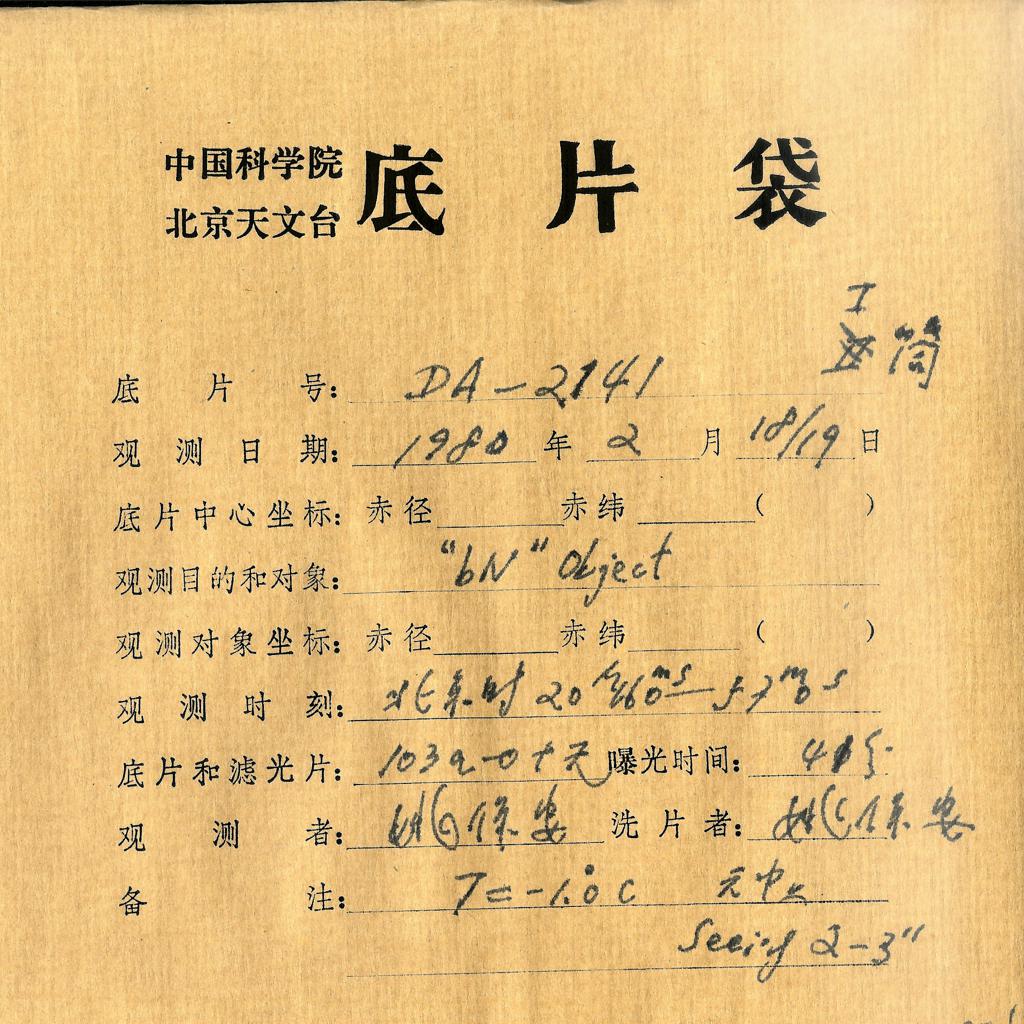 中国科学院
北京天文台
底片袋
I
筒
底片号: DA-2141
观测日期: 1980年2月18/19日
底片中心坐标: 赤径 赤纬 ( )
观测目的和对象: "bN" Object
观测对象坐标: 赤径 赤纬 ( )
观测时刻: 北京时 20h 16m 0s — 57m 0s
底片和滤光片: 103a-O+无 曝光时间: 41分
观测者: 姚保安 洗片者: 姚保安
备注: T=-1.0°C
Seeing 2-3"